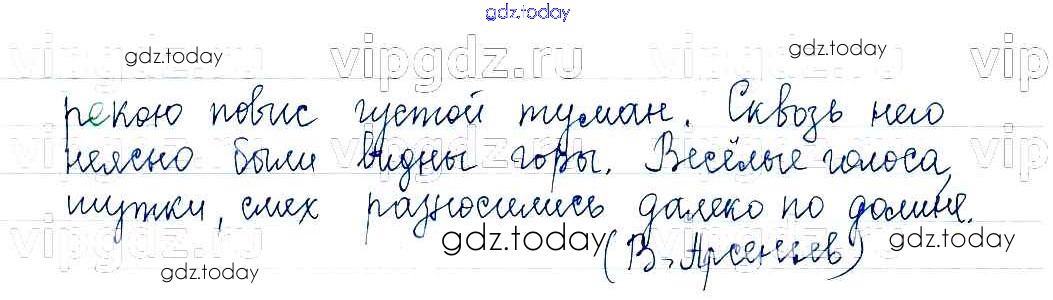 gdz.today
vipgdz.ru vipgdz.ru vip
gdz.today gdz.today
рекою повис густой туман. Сквозь него
неясно были видны горы. Весёлые голоса,
шутки, смех разносились далеко по долине.
gdz.today gdz.today
(В. Арсеньев)
vipgdz.ru vipgdz.ru vip
gdz.today gdz.today